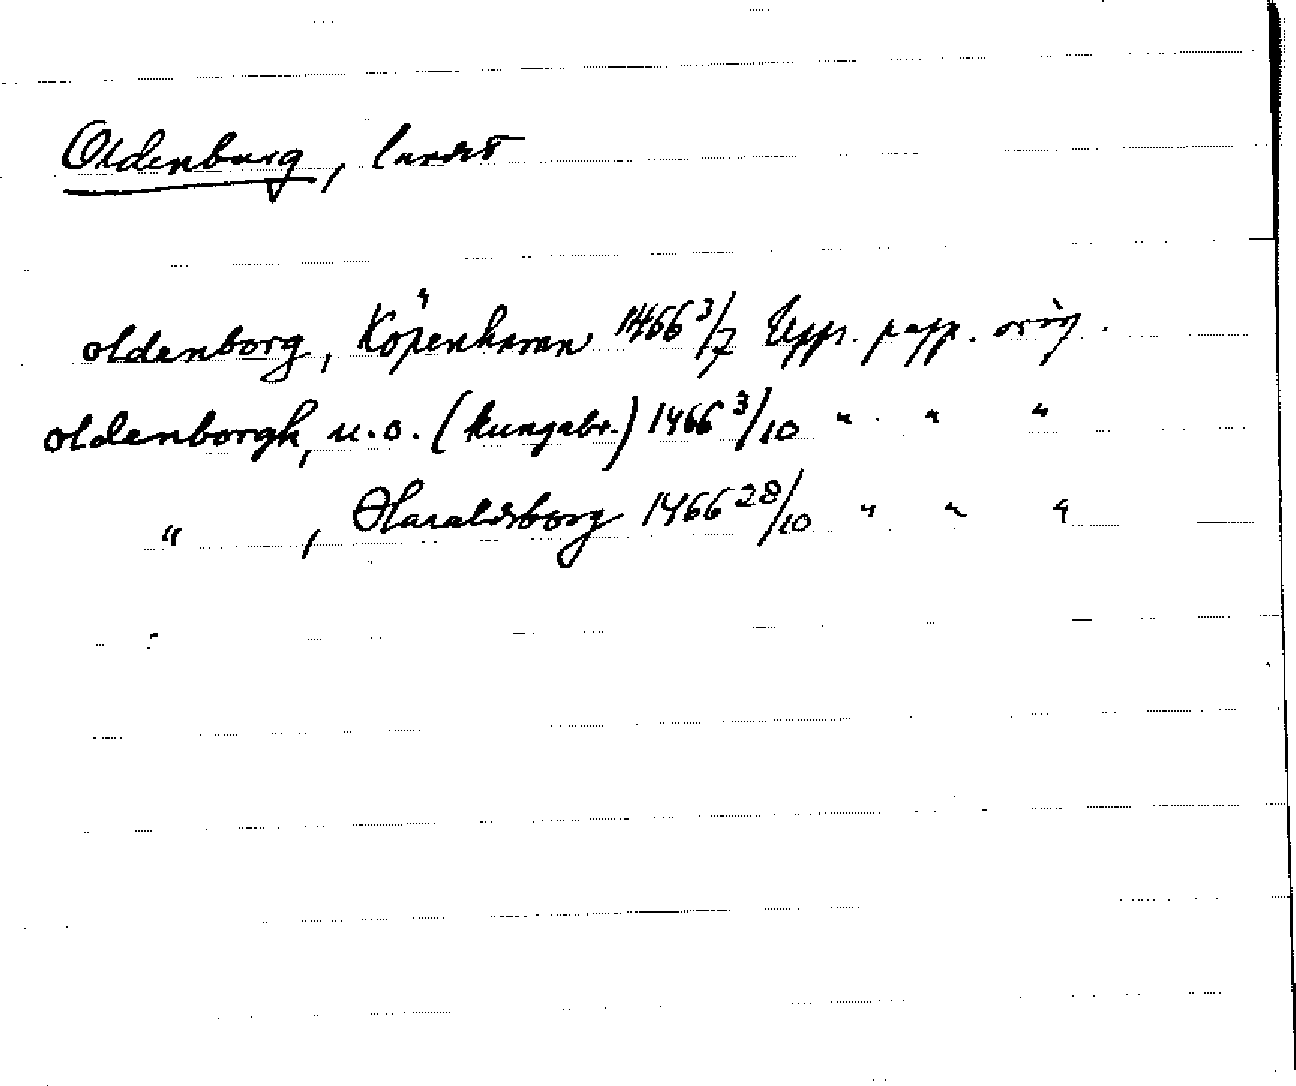 Oldenburg, landet
oldenborg, Köpenhamn 1466 3/7 Upps. papp. orig.
oldenborgh, u.o. (kungabr.) 1466 3/10 " " "
" , Haraldsborg 1466 28/10 " " "